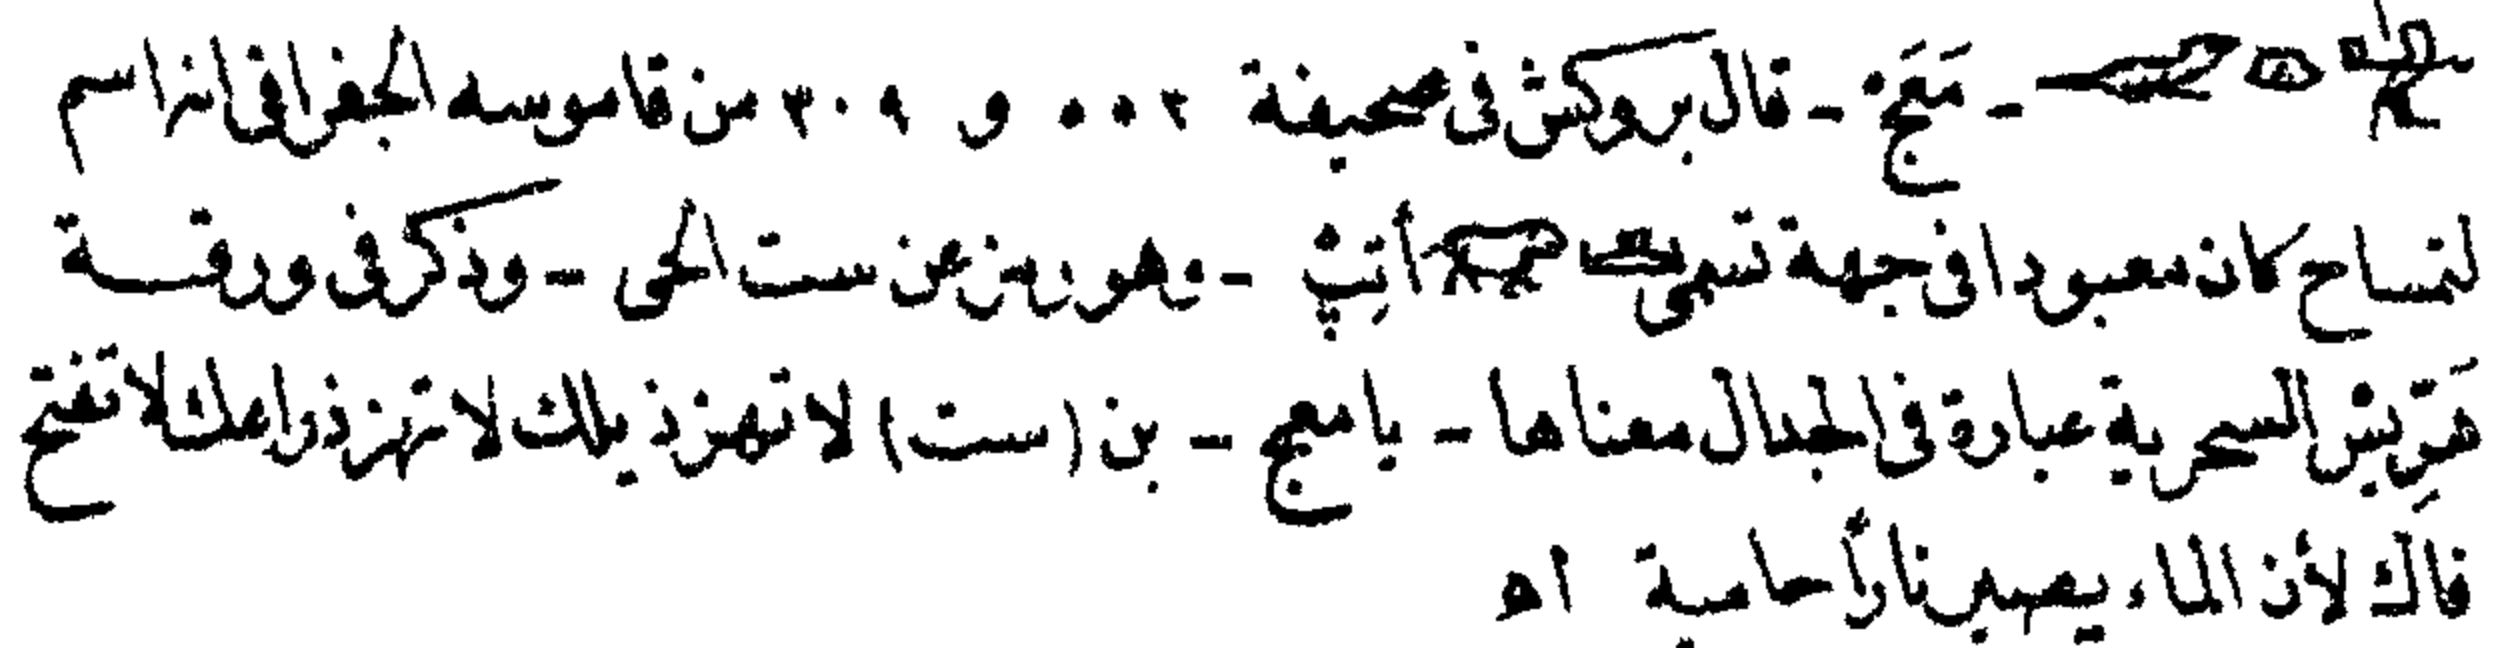 مَعَج - قال بروكش فى صحيفة ٥٠٠٢ و ٣٠٩ من قاموسه الجغرافى انه اسم
لتمساح كان معبودا فى جهة تسمى أپث - وهو رمز عن ست الحى - وذكر فى ورقة
هرّيس السحرية عبارة فى الجدال معناها - يا معج - بن (ست) لا تهز ذيلك لا تهز ذراعك لا تفتح
فاك لأن الماء يصير نارًا حامية اه